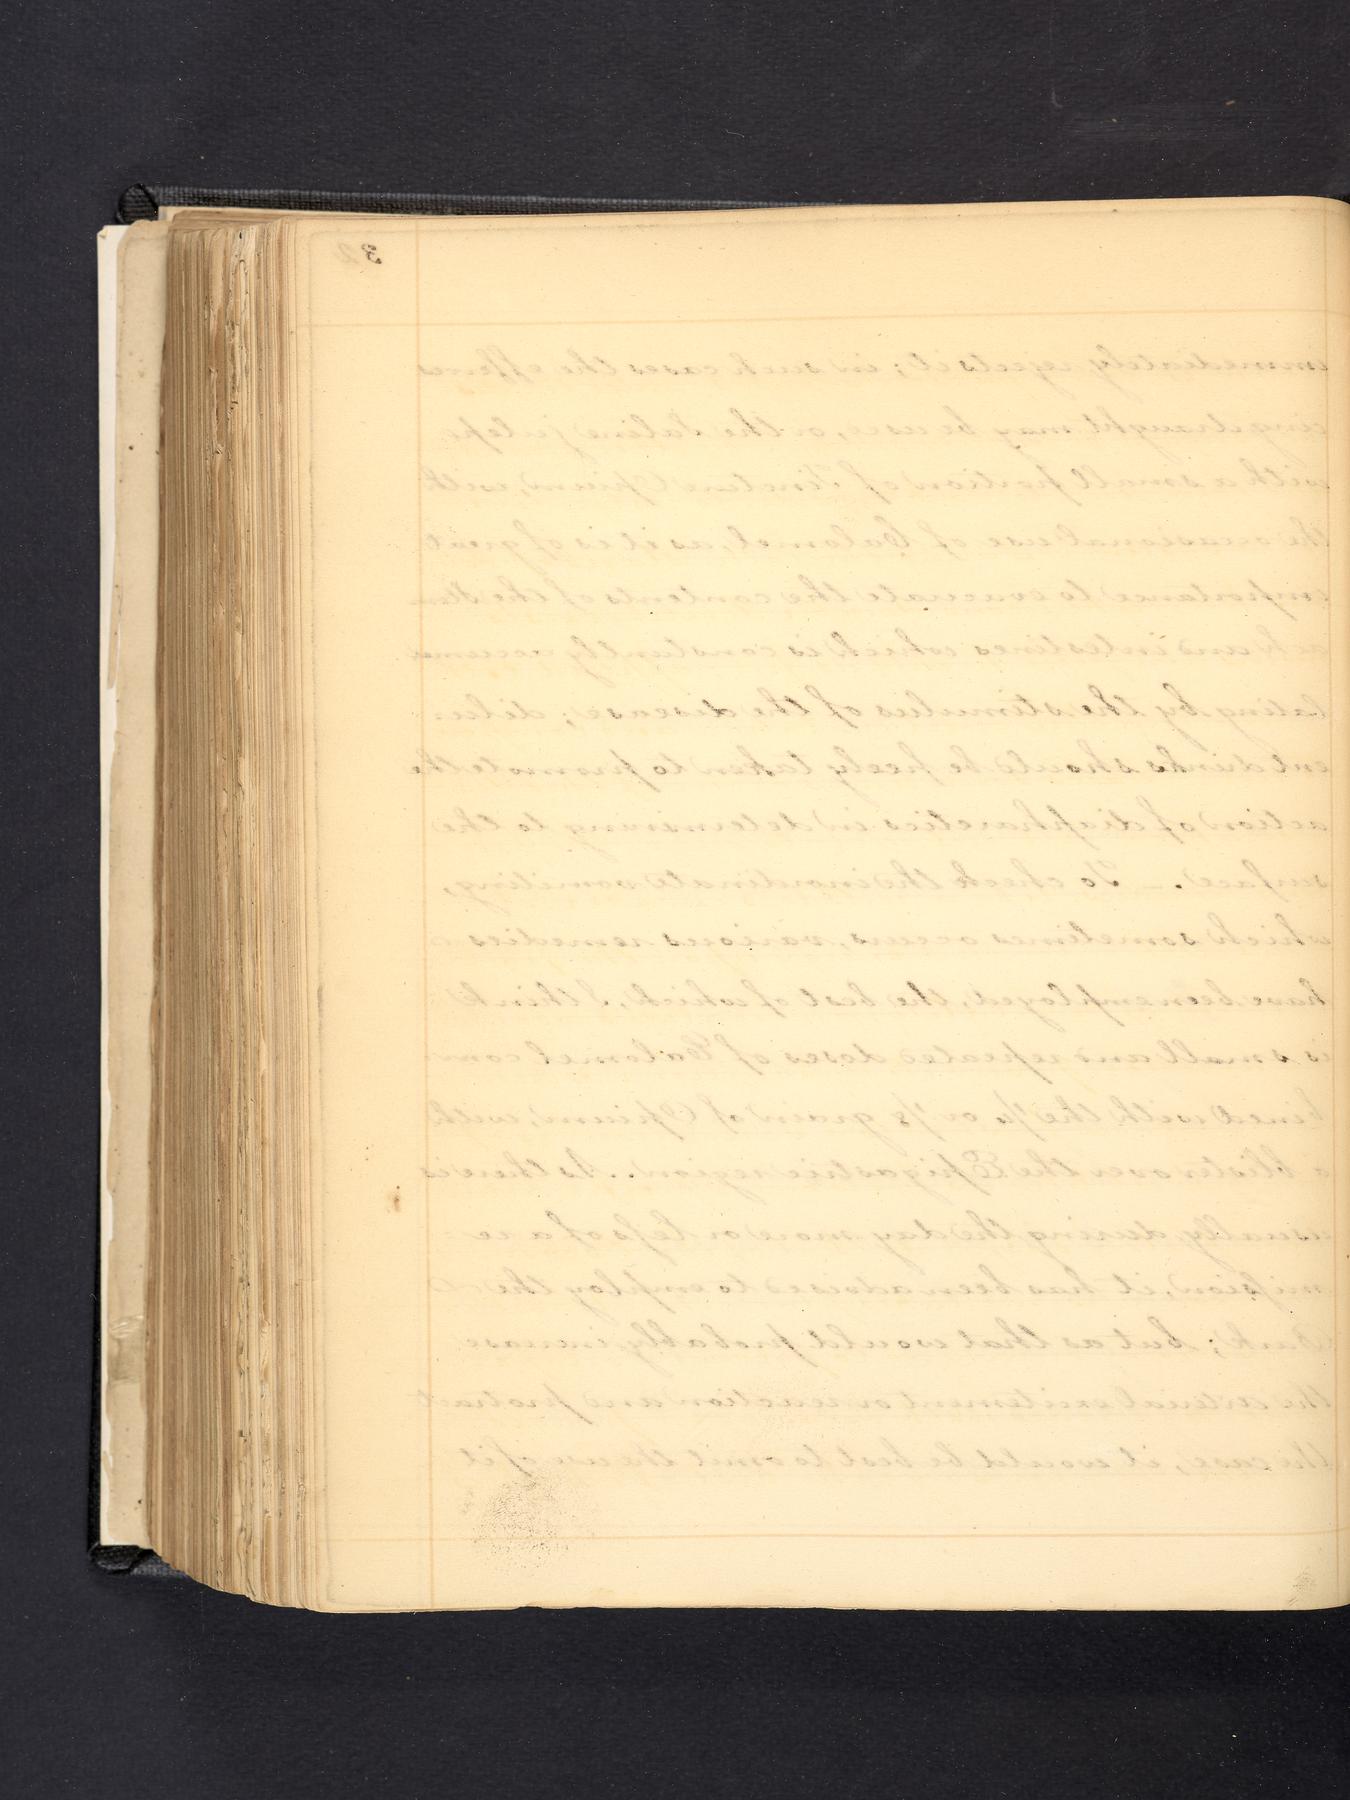 32
immediately rejects it; in such cases the efferves
cing draught may be used, or the Saline julep
with a small portion of Tincture Opium, with
the occasional use of Calomel, as it is of great
importance to evacuate the contents of the stom
ach and intestines which is constantly accumu
lating by the stimulus of the disease; dilu-
ent drinks should be freely taken to promote the
action of diaphoretics in determining to the
surface. — To check the inordinate vomiting,
which sometimes occurs, various remedies
have been employed, the best of which, I think
is small and repeated doses of Calomel com
bined with the ¼ or ⅛ grain of Opium, with
a blister over the Epigastric region. As there is
usually during the day more or less of a re-
mission, it has been advised to employ the
Bark; but as that would probably increase
the arterial excitement or reaction and protract
the case, it would be best to omit the use of it